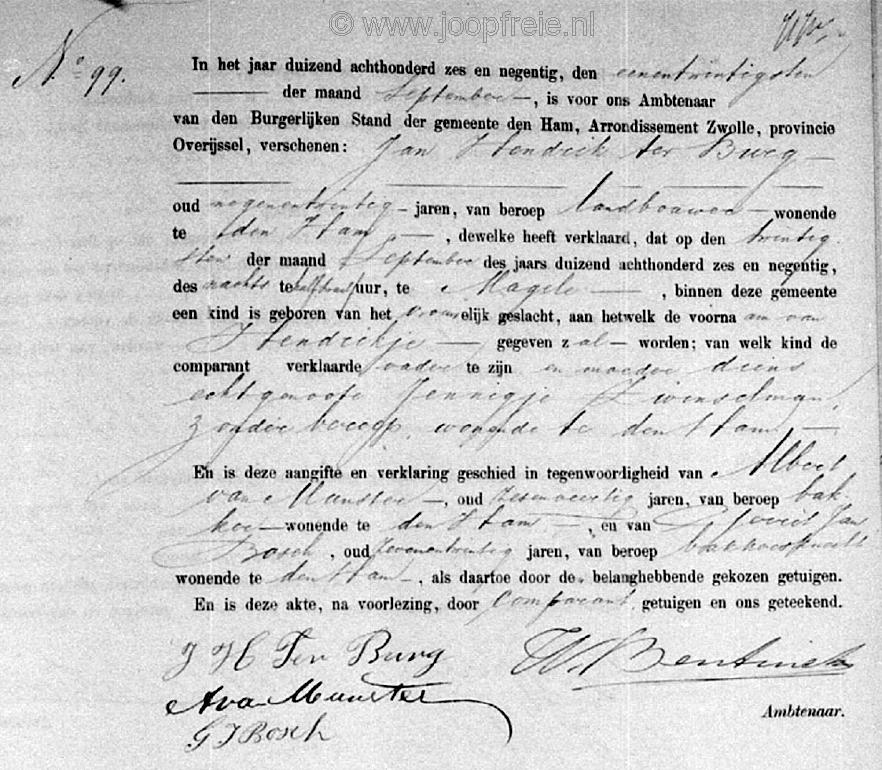 © www.joopfreie.nl
No 99.
In het jaar duizend achthonderd zes en negentig, den eenentwintigsten
der maand September, is voor ons Ambtenaar
van den Burgerlijken Stand der gemeente den Ham, Arrondissement Zwolle, provincie
Overijssel, verschenen: Jan Hendrik ter Burg
oud negenentwintig jaren, van beroep landbouwer wonende
te den Ham, dewelke heeft verklaard, dat op den twintig-
sten der maand September des jaars duizend achthonderd zes en negentig,
des nachts te half twee uur, te Magele, binnen deze gemeente
een kind is geboren van het vrouwelijk geslacht, aan hetwelk de voornaam van
Hendrikje gegeven zal worden; van welk kind de
comparant verklaarde vader te zijn en moeder diens
echtgenoote Jennigje Zwinselman,
zonder beroep, wonende te den Ham.
En is deze aangifte en verklaring geschied in tegenwoordigheid van Albert
van Munster, oud zesenveertig jaren, van beroep bak-
ker wonende te den Ham, en van Gerrit Jan
Bosch, oud zevenentwintig jaren, van beroep bakkersknecht
wonende te den Ham, als daartoe door de belanghebbende gekozen getuigen.
En is deze akte, na voorlezing, door Comparant, getuigen en ons geteekend.
J H Ter Burg
W. Bentinck
A van Munster
Ambtenaar.
G J Bosch